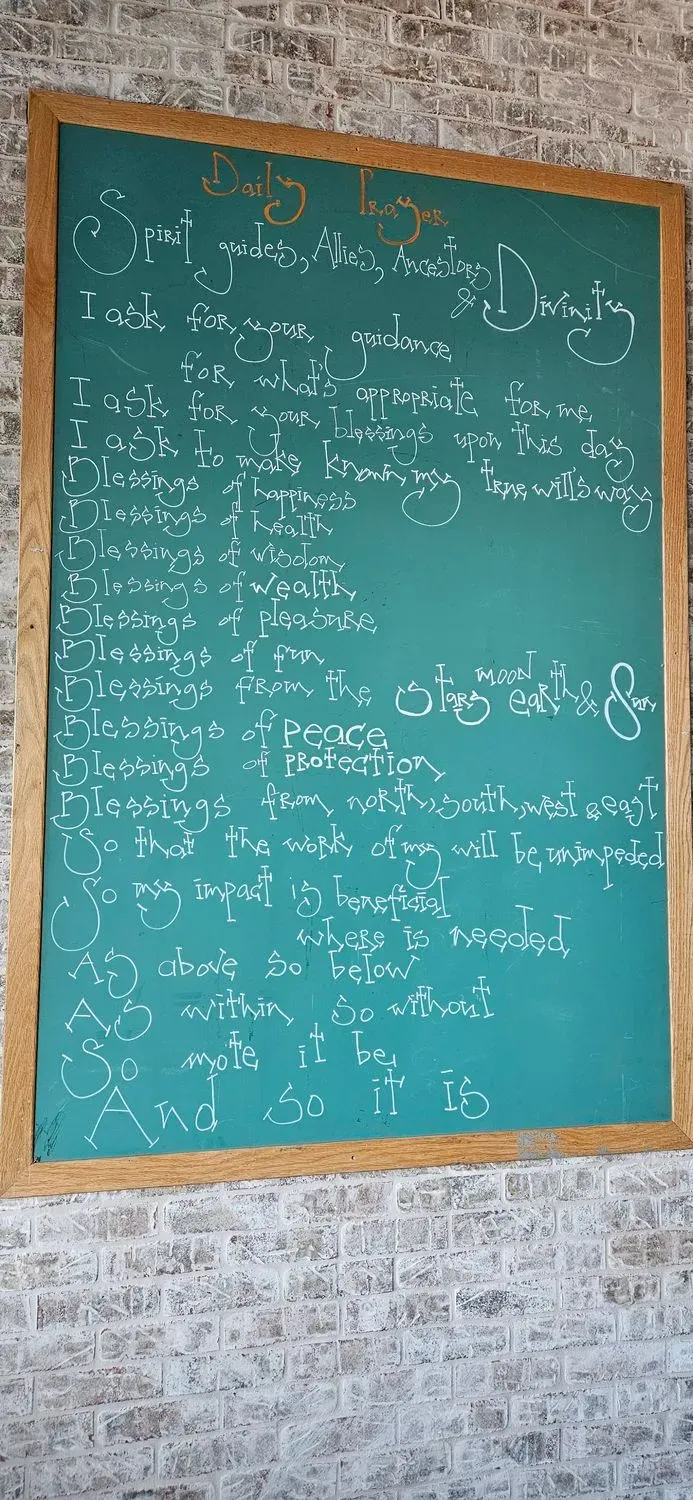 Daily Prayer
Spirit guides, Allies, Ancestors
& Divinity
I ask for your guidance
for what's appropriate for me,
I ask for your blessings upon this day
I ask to make known my true will's ways
Blessings of happiness
Blessings of health
Blessings of wisdom
Blessings of wealth
Blessings of pleasure
Blessings of fun
Blessings from the stars moon earth & Sun
Blessings of peace
Blessings of protection
Blessings from north, south, west & east
So that the work of my will be unimpeded
So my impact is beneficial
where is needed
As above so below
As within so without
So mote it be
And so it is